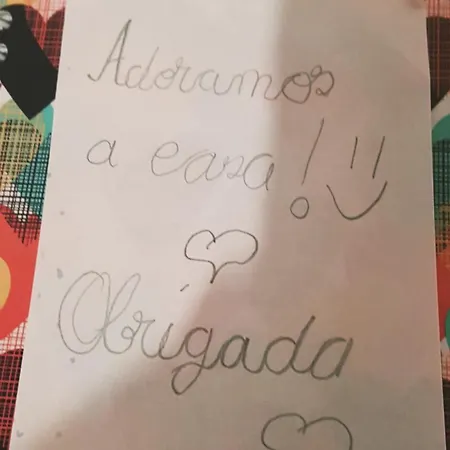 Adoramos
a casa! :)
Obrigada